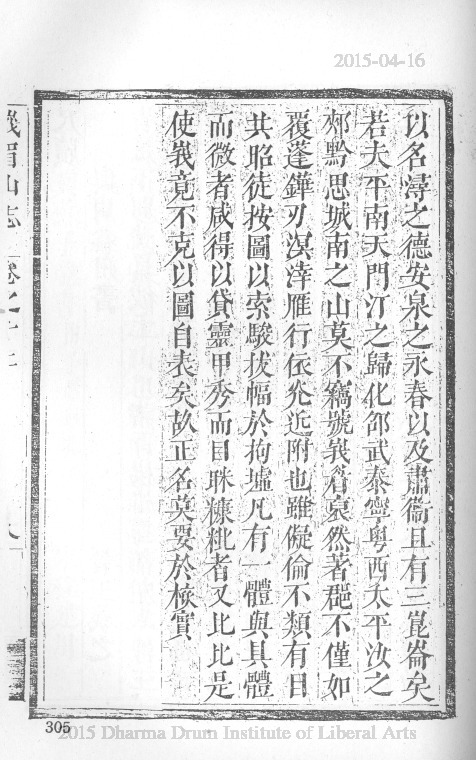 2015-04-16
以名潯之德安泉之永春以及肅衞且有三崑崙矣
若夫平南天門汀之歸化邵武泰寧粵西太平汝之
郟黔思城南之山莫不竊號峩眉裒然著稱不僅如
覆蓬鏵刃溟涬雁行依光近附也雖儗倫不類有目
其昭徒按圖以索駿拔幅於拘墟凡有一體與具體
而微者咸得以貸靈甲秀而目眯糠粃者又比比是
使峩竟不克以圖自表矣故正名莫要於檢實
峨眉山志 卷之十二 八
305
2015 Dharma Drum Institute of Liberal Arts